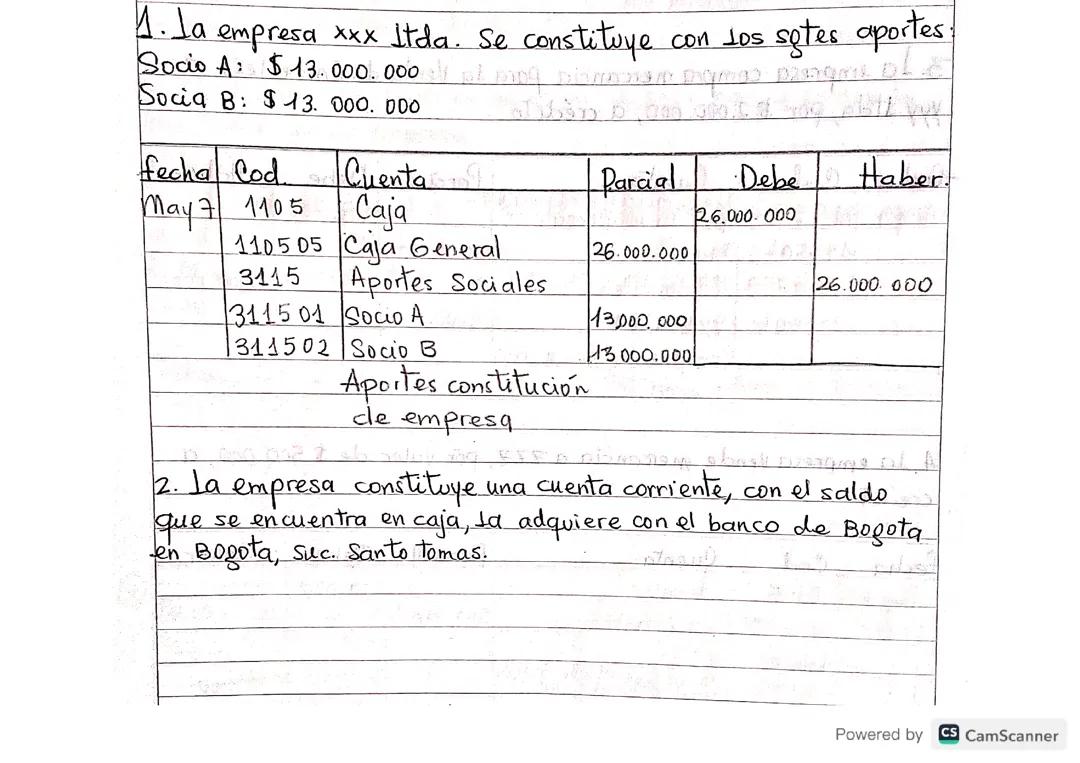 1. La empresa xxx ltda. Se constituye con los sgtes aportes:
Socio A: $ 13.000.000
Socia B: $ 13.000.000
fecha Cod. Cuenta Parcial Debe Haber.
May 7 1105 Caja 26.000.000
110505 Caja General 26.000.000
3115 Aportes Sociales 26.000.000
311501 Socio A 13.000.000
311502 Socio B 13.000.000
Aportes constitución
de empresa
2. La empresa constituye una cuenta corriente, con el saldo
que se encuentra en caja, la adquiere con el banco de Bogota
en Bogota, suc. Santo tomas.
Powered by CS CamScanner